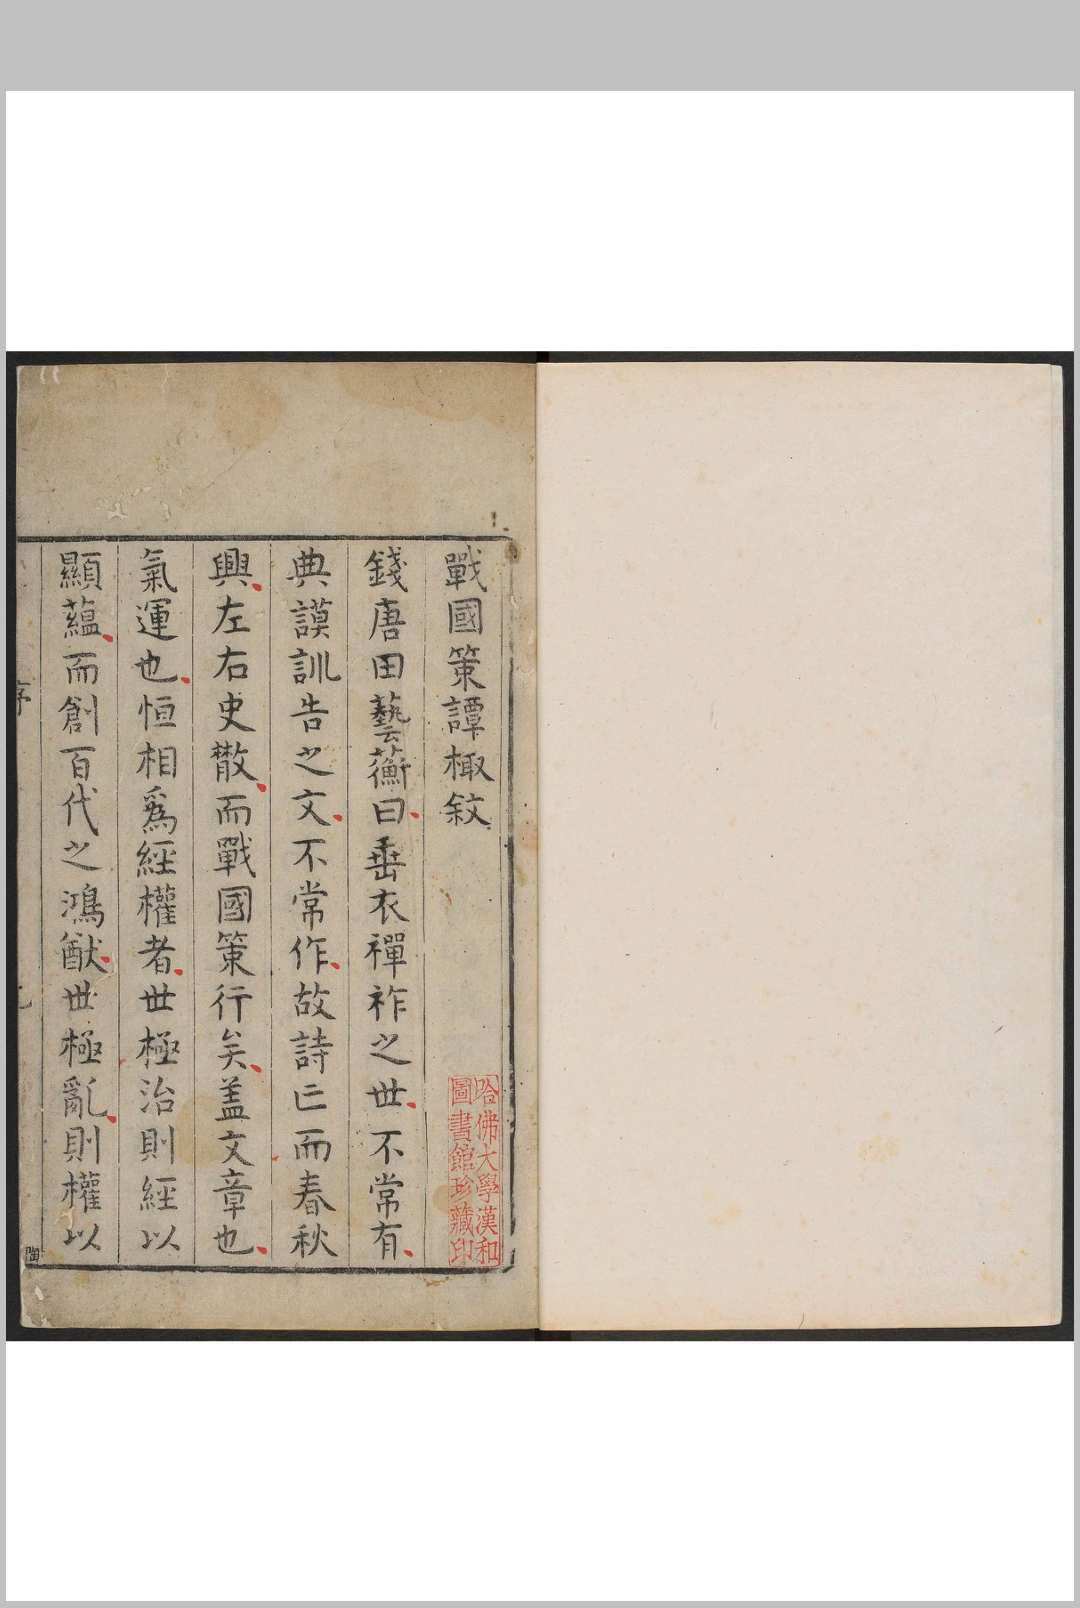 戰國策譚棷敘
錢唐田藝蘅曰垂衣禪祚之世不常有
典謨訓告之文不常作故詩亾而春秋
興左右史散而戰國策行矣蓋文章也
氣運也恒相爲經權者世極治則經以
顯蘊而創百代之鴻猷世極亂則權以
序
哈佛大學漢和
圖書館珍藏印